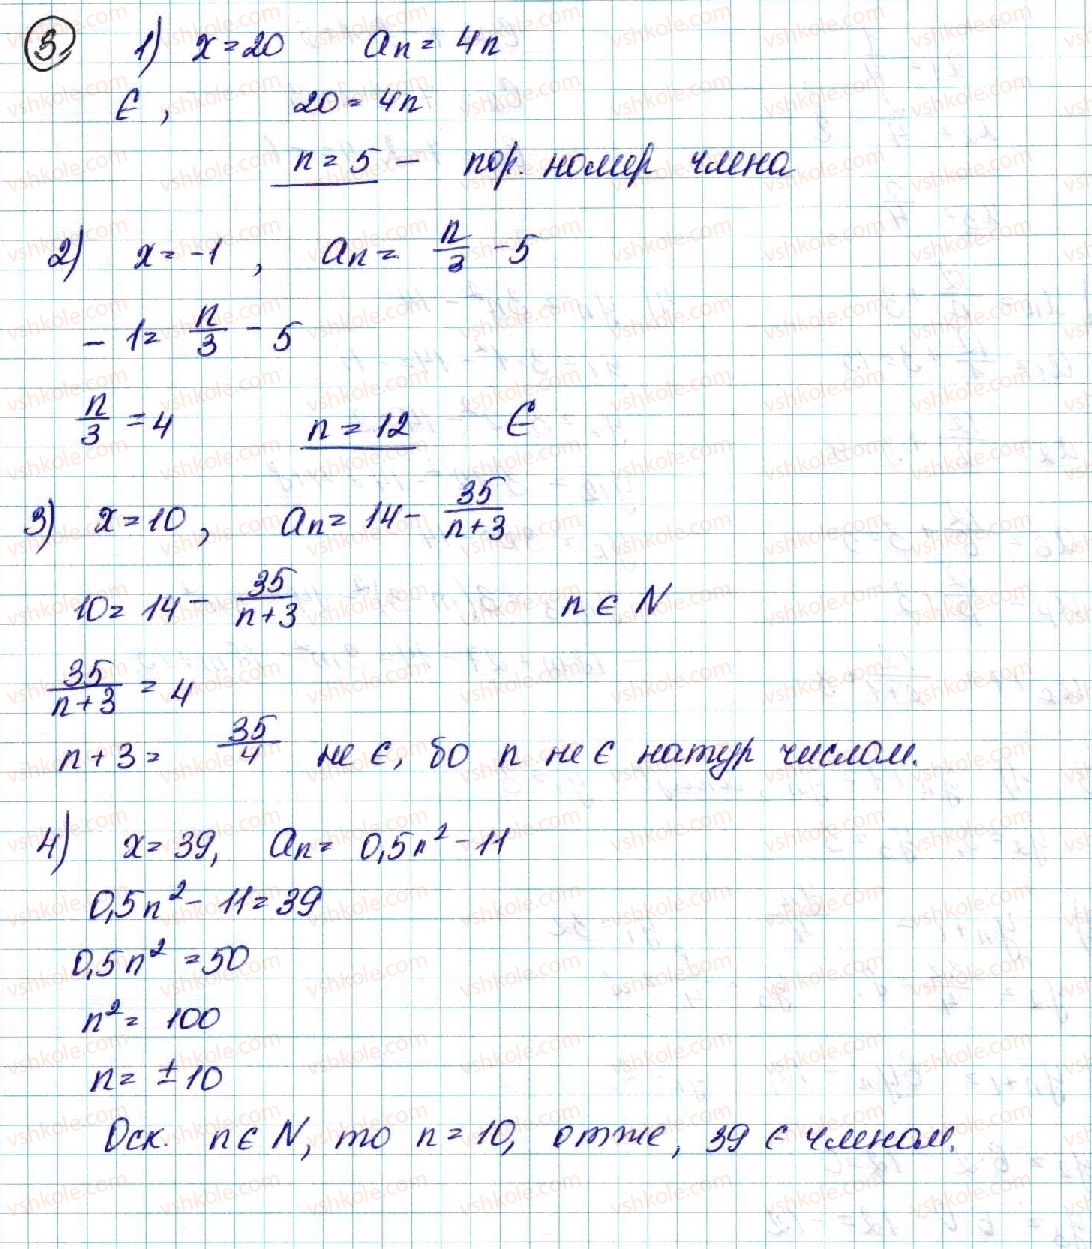 3. 1) x = 20 aₙ = 4n
Є, 20 = 4n
n = 5 – пор. номер члена
2) x = -1, aₙ = n/3 - 5
- 1 = n/3 - 5
n/3 = 4 n = 12 Є
3) x = 10, aₙ = 14 - 35/(n+3)
10 = 14 - 35/(n+3) n є N
35/(n+3) = 4
n + 3 = 35/4 не є, бо n не є натур числом.
4) x = 39, aₙ = 0,5n² - 11
0,5n² - 11 = 39
0,5n² = 50
n² = 100
n = ±10
Оск. n є N, то n = 10, отже, 39 є членом.
vshkole.com